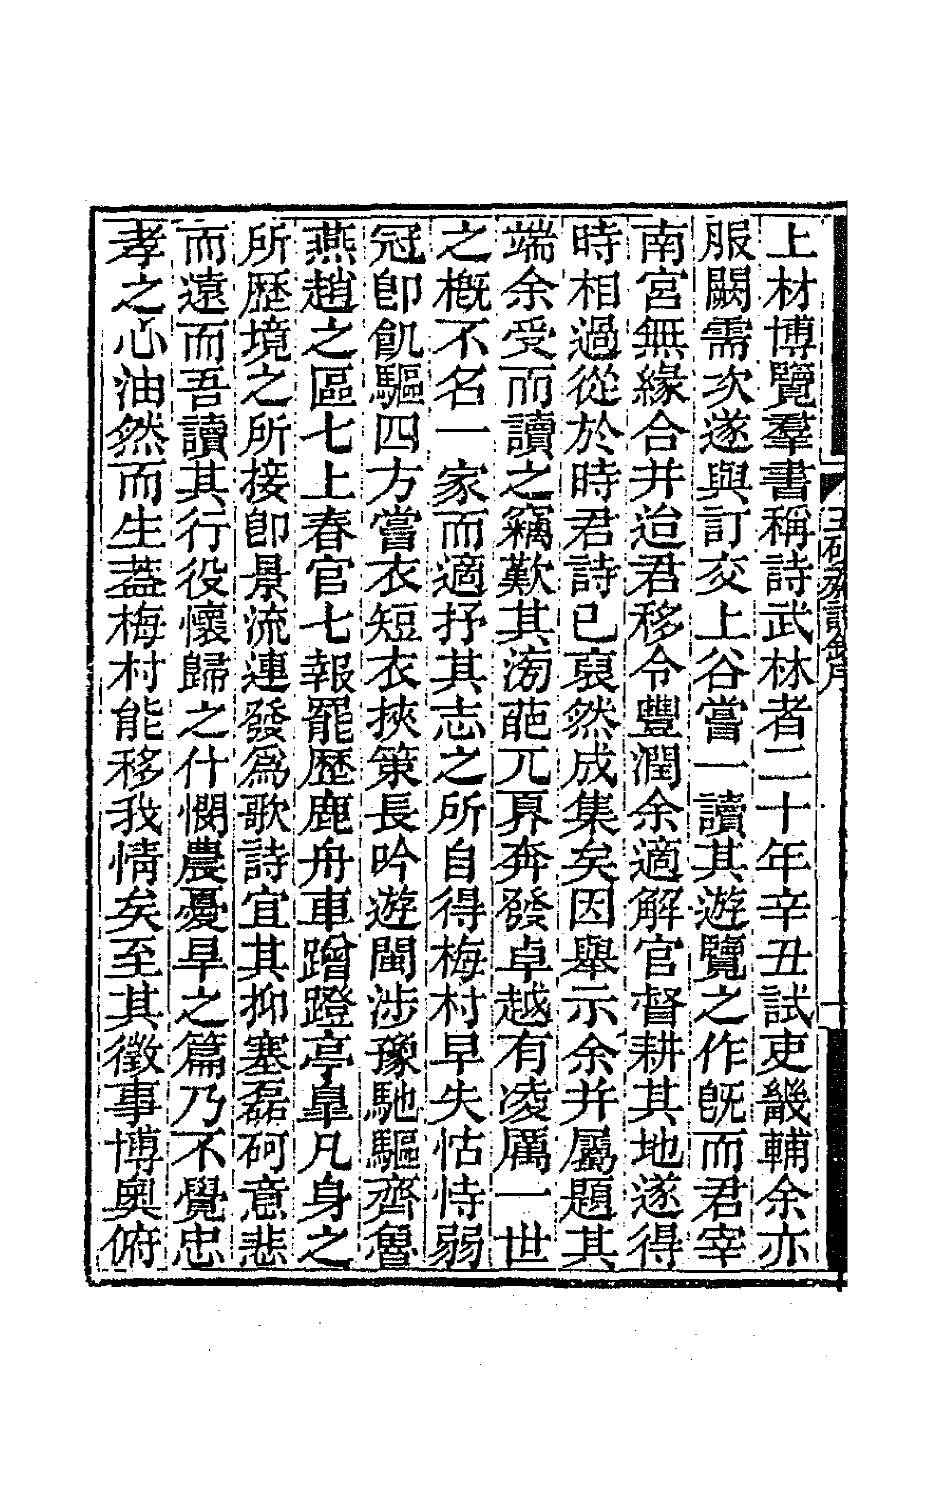 上材博覽羣書稱詩武林者二十年辛丑試吏畿輔余亦
服闕需次遂與訂交上谷嘗一讀其遊覽之作旣而君宰
南宮無緣合并迨君移令豐潤余適解官督耕其地遂得
時相過從於時君詩已裒然成集矣因舉示余并屬題其
端余受而讀之竊歎其滂葩兀奡奔發卓越有凌厲一世
之槪不名一家而適抒其志之所自得梅村早失怙恃弱
冠卽飢驅四方嘗衣短衣挾策長吟遊閩涉豫馳驅齊魯
燕趙之區七上春官七報罷歷鹿舟車蹭蹬亭臯凡身之
所歷境之所接卽景流連發爲歌詩宜其抑塞磊砢意悲
而遠而吾讀其行役懷歸之什憫農憂旱之篇乃不覺忠
孝之心油然而生蓋梅村能移我情矣至其徵事博奧俯